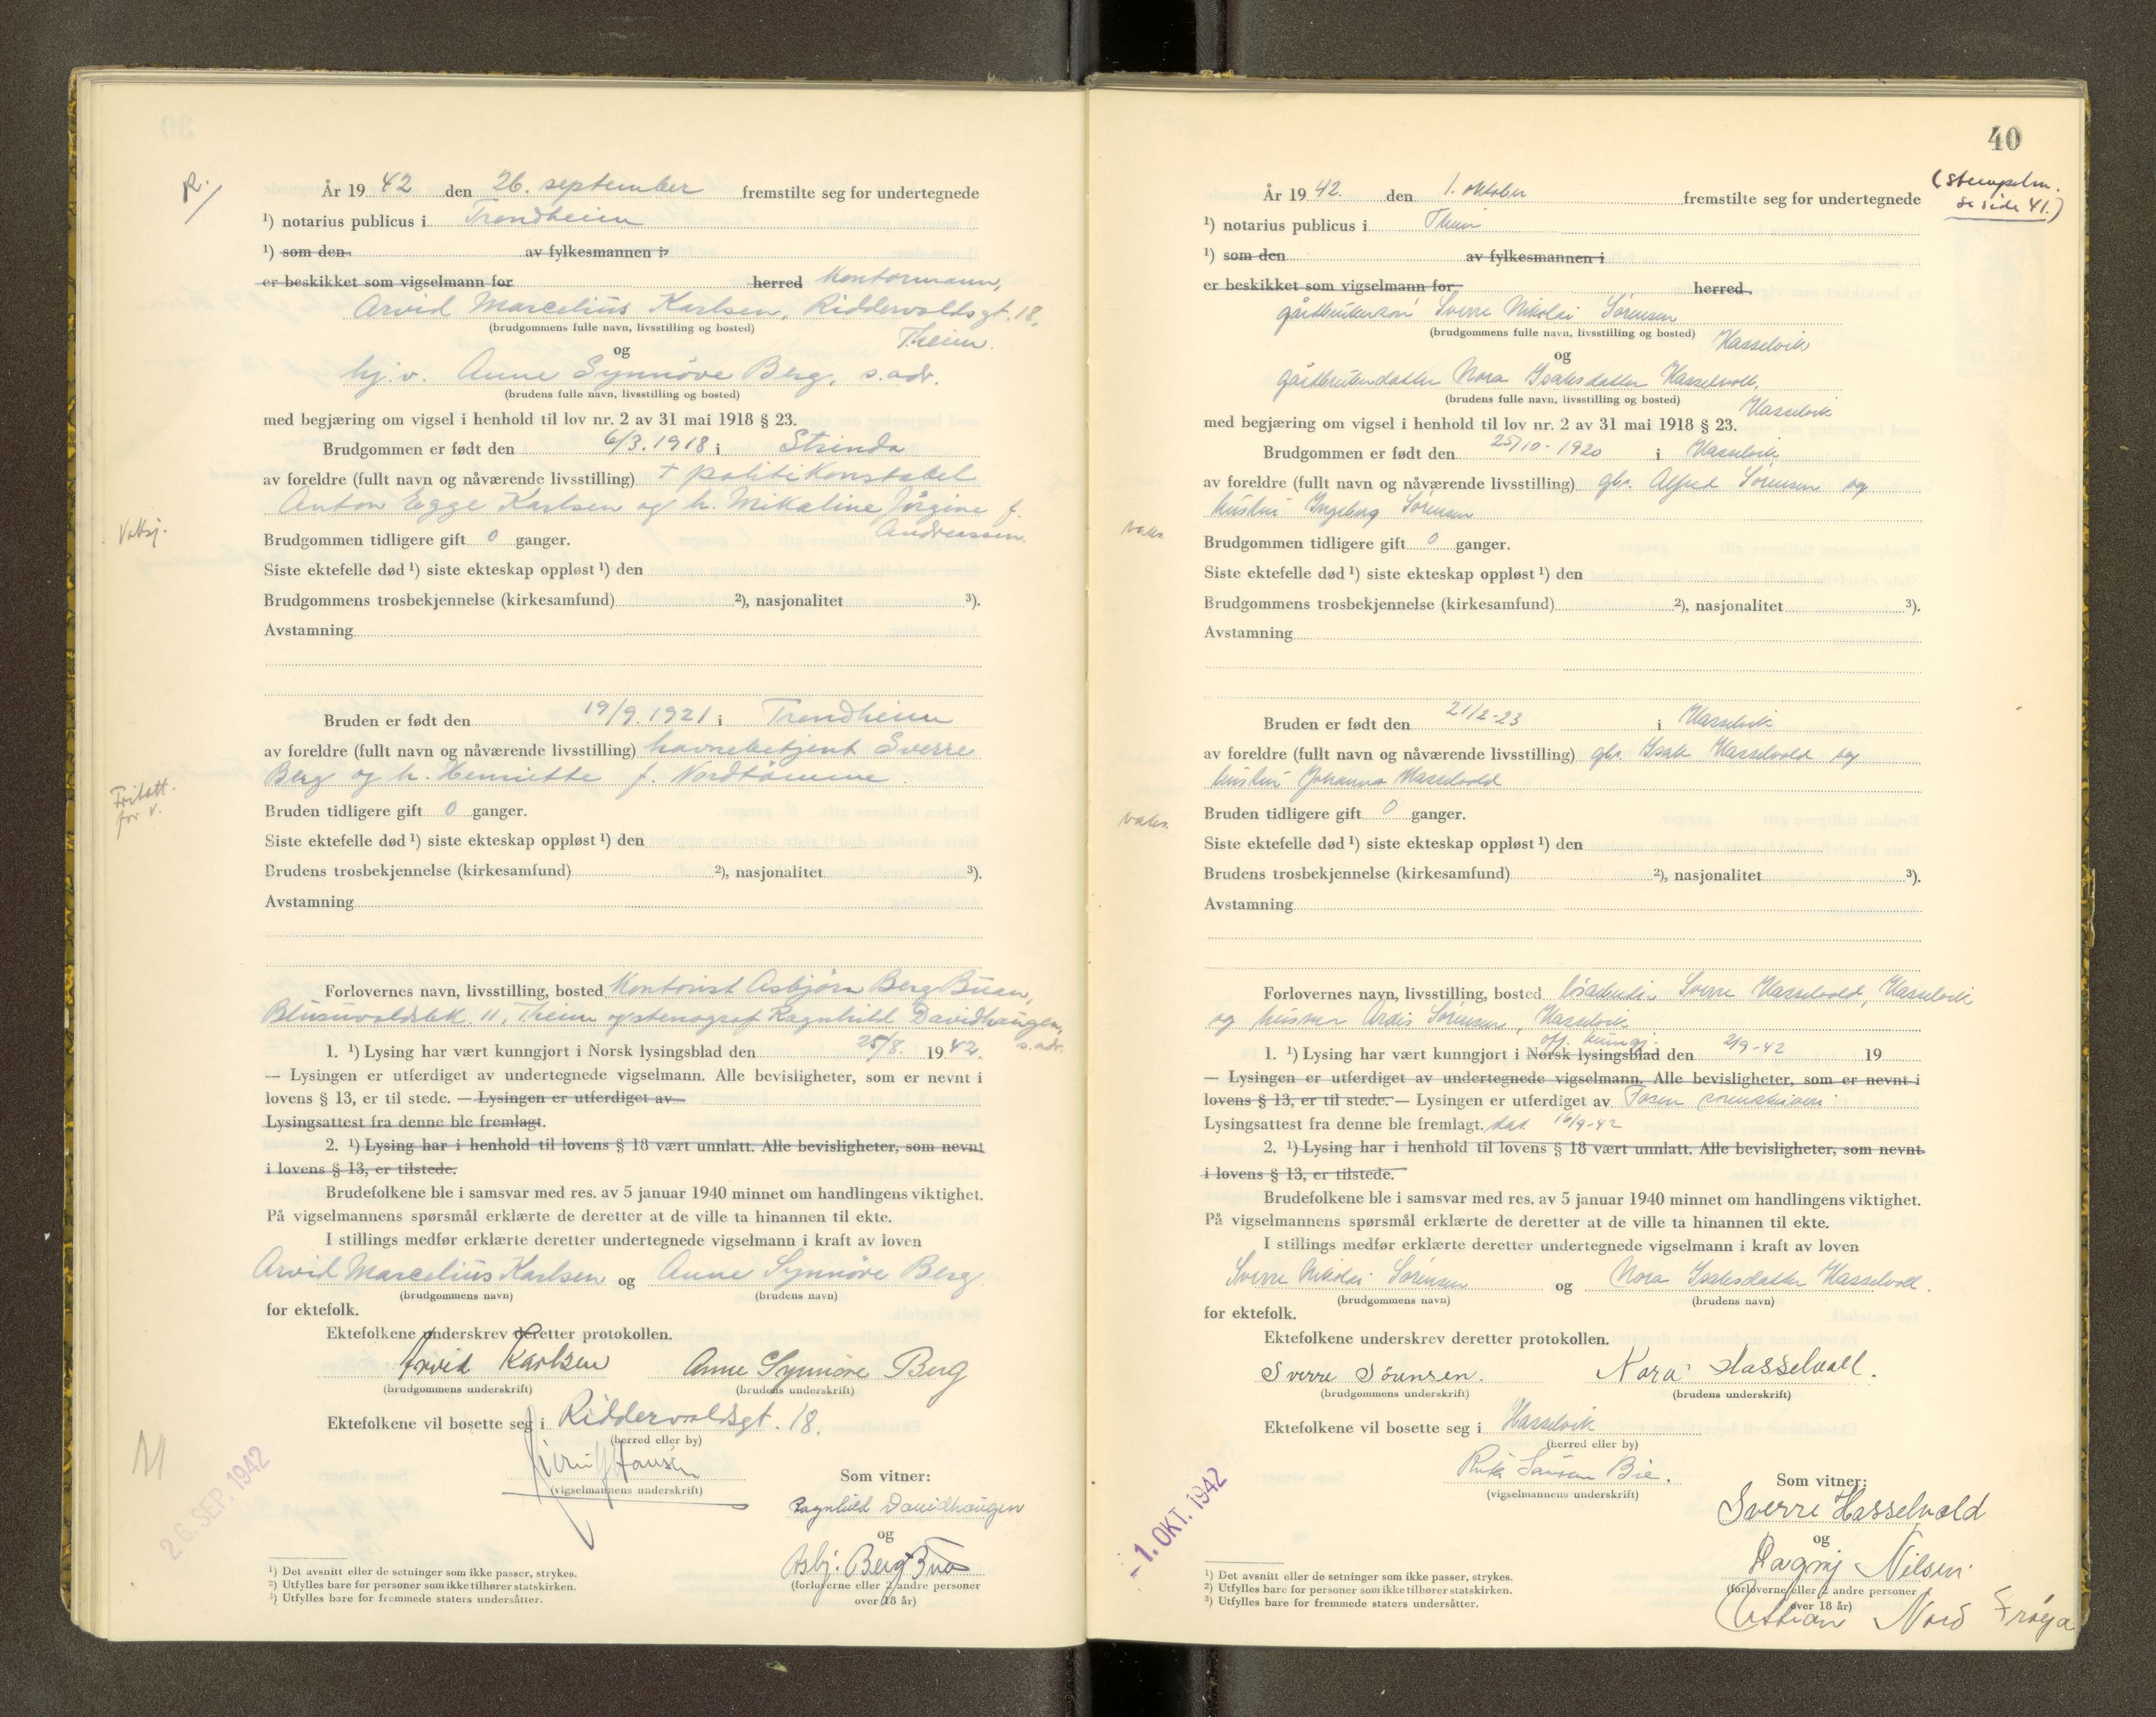 R./
År 19 42 den 26. september fremstilte seg for undertegnede
¹) notarius publicus i Trondheim
¹) som den av fylkesmannen i
er beskikket som vigselmann for herred Kontormann,
Arvid Marcelius Karlsen, Riddervoldsgt. 18,
(brudgommens fulle navn, livsstilling og bosted)
Theim.
og
hj.v. Anne Synnöve Berg, s.adr.
(brudens fulle navn, livsstilling og bosted)
med begjæring om vigsel i henhold til lov nr. 2 av 31 mai 1918 § 23.
Brudgommen er født den 6/3. 1918 i Strinda
av foreldre (fullt navn og nåværende livsstilling) + politikonstabel
Anton Egge Karlsen og h. Mikaline Jörgine f.
Andreassen.
Brudgommen tidligere gift 0 ganger.
Siste ektefelle død ¹) siste ekteskap oppløst ¹) den
Brudgommens trosbekjennelse (kirkesamfund) ²), nasjonalitet ³).
Avstamning
Bruden er født den 19/9. 1921 i Trondheim
av foreldre (fullt navn og nåværende livsstilling) havnebetjent Sverre
Berg og h. Henriette f. Nordtömme.
Fritatt.
for v.
Bruden tidligere gift 0 ganger.
Siste ektefelle død ¹) siste ekteskap oppløst ¹) den
Brudens trosbekjennelse (kirkesamfund) ²), nasjonalitet ³).
Avstamning
Forlovernes navn, livsstilling, bosted Kontorist Asbjörn Berg Buan,
11, Theim og stenograf Ragnhild Davidhaugen,
s.adr.
1. ¹) Lysing har vært kunngjort i Norsk lysingsblad den 25/8. 19 42.
— Lysingen er utferdiget av undertegnede vigselmann. Alle bevisligheter, som er nevnt i
lovens § 13, er til stede. — Lysingen er utferdiget av
Lysingsattest fra denne ble fremlagt.
2. ¹) Lysing har i henhold til lovens § 18 vært unnlatt. Alle bevisligheter, som nevnt
i lovens § 13, er tilstede.
Brudefolkene ble i samsvar med res. av 5 januar 1940 minnet om handlingens viktighet.
På vigselmannens spørsmål erklærte de deretter at de ville ta hinannen til ekte.
I stillings medfør erklærte deretter undertegnede vigselmann i kraft av loven
Arvid Marcelius Karlsen og Anne Synnöve Berg.
(brudgommens navn) (brudens navn)
for ektefolk.
Ektefolkene underskrev deretter protokollen.
Arvid Karlsen Anne Synnöve Berg
(brudgommens underskrift) (brudens underskrift)
Ektefolkene vil bosette seg i Riddervoldsgt. 18.
(herred eller by)
Hansen
(vigselmannens underskrift)
Som vitner:
Ragnhild Davidhaugen
og
Asbj. Berg Bua
(forloverne eller 2 andre personer
over 18 år)
26. SEP. 1942
¹) Det avsnitt eller de setninger som ikke passer, strykes.
²) Utfylles bare for personer som ikke tilhører statskirken.
³) Utfylles bare for fremmede staters undersåtter.
40
(stempelm.
se side 41.)
År 19 42. den 1. oktober fremstilte seg for undertegnede
¹) notarius publicus i Theim
¹) som den av fylkesmannen i
er beskikket som vigselmann for herred.
gårdbrukersön Sverre Nikolai Sörensen
(brudgommens fulle navn, livsstilling og bosted)
Hasselvik
og
gårdbrukerdatter Nora Isaksdatter Hasselvoll,
(brudens fulle navn, livsstilling og bosted)
Hasselvik
med begjæring om vigsel i henhold til lov nr. 2 av 31 mai 1918 § 23.
Brudgommen er født den 25/10 - 1920 i Hasselvik
av foreldre (fullt navn og nåværende livsstilling) gbr. Alfred Sörensen og
hustru Ingeborg Sörensen
vaks.
Brudgommen tidligere gift 0 ganger.
Siste ektefelle død ¹) siste ekteskap oppløst ¹) den
Brudgommens trosbekjennelse (kirkesamfund) ²), nasjonalitet ³).
Avstamning
Bruden er født den 21/2-23 i Hasselvik
av foreldre (fullt navn og nåværende livsstilling) gbr. Isak Hasselvold og
hustru Johanna Hasselvold
vaks.
Bruden tidligere gift 0 ganger.
Siste ektefelle død ¹) siste ekteskap oppløst ¹) den
Brudens trosbekjennelse (kirkesamfund) ²), nasjonalitet ³).
Avstamning
Forlovernes navn, livsstilling, bosted Sverre Hasselvold, Hasselvik
og husmor Ardis Sörensen, Hasselvik
off. kunngj.
1. ¹) Lysing har vært kunngjort i Norsk lysingsblad den 2/9-42 19
— Lysingen er utferdiget av undertegnede vigselmann. Alle bevisligheter, som er nevnt i
lovens § 13, er til stede. — Lysingen er utferdiget av Fosen sorenskriveri
Lysingsattest fra denne ble fremlagt. dat 16/9-42
2. ¹) Lysing har i henhold til lovens § 18 vært unnlatt. Alle bevisligheter, som nevnt
i lovens § 13, er tilstede.
Brudefolkene ble i samsvar med res. av 5 januar 1940 minnet om handlingens viktighet.
På vigselmannens spørsmål erklærte de deretter at de ville ta hinannen til ekte.
I stillings medfør erklærte deretter undertegnede vigselmann i kraft av loven
Sverre Nikolai Sörensen og Nora Isaksdatter Hasselvoll.
(brudgommens navn) (brudens navn)
for ektefolk.
Ektefolkene underskrev deretter protokollen.
Sverre Sörensen. Nora Hasselvoll.
(brudgommens underskrift) (brudens underskrift)
Ektefolkene vil bosette seg i Hasselvik
(herred eller by)
Bie.
(vigselmannens underskrift)
Som vitner:
Sverre Hasselvold
og
Dagny Nilsen
(forloverne eller 2 andre personer
over 18 år)
Nord Fröya
- 1. OKT. 1942
¹) Det avsnitt eller de setninger som ikke passer, strykes.
²) Utfylles bare for personer som ikke tilhører statskirken.
³) Utfylles bare for fremmede staters undersåtter.